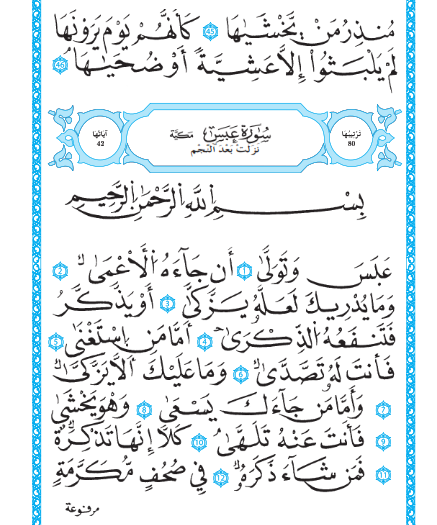 مُنذِرُ مَنْ يَّخْشَيٰهَا ۝45 كَأَنَّهُمْ يَوْمَ يَرَوْنَهَا
لَمْ يَلْبَثُوٓاْ إِلَّا عَشِيَّةً أَوْ ضُحَيٰهَا ۝46
تَرْتِيبُهَا 80 سُورَةُ عَبَسَ مَكِّيَّة آيَاتُهَا 42
نَزَلَتْ بَعْدَ النَّجْمِ
بِسْمِ اِللَّهِ اِلرَّحْمَٰنِ اِلرَّحِيمِ
عَبَسَ وَتَوَلَّىٰٓ ۝1 أَن جَآءَهُ اُلْأَعْمَىٰ ۝2
وَمَا يُدْرِيكَ لَعَلَّهُۥ يَزَّكَّىٰٓ ۝3 أَوْ يَذَّكَّرُ
فَتَنفَعُهُ اُلذِّكْرَىٰٓ ۝4 أَمَّا مَنِ اِسْتَغْنَىٰ ۝5
فَأَنتَ لَهُۥ تَصَّدَّىٰ ۝6 وَمَا عَلَيْكَ أَلَّا يَزَّكَّىٰ
۝7 وَأَمَّا مَن جَآءَكَ يَسْعَىٰ ۝8 وَهْوَ يَخْشَىٰ
۝9 فَأَنتَ عَنْهُ تَلَهَّىٰ ۝10 كَلَّآ إِنَّهَا تَذْكِرَةٌ
۝11 فَمَن شَآءَ ذَكَرَهُۥ ۝12 فِي صُحُفٍ مُّكَرَّمَةٍ
مرفوعة